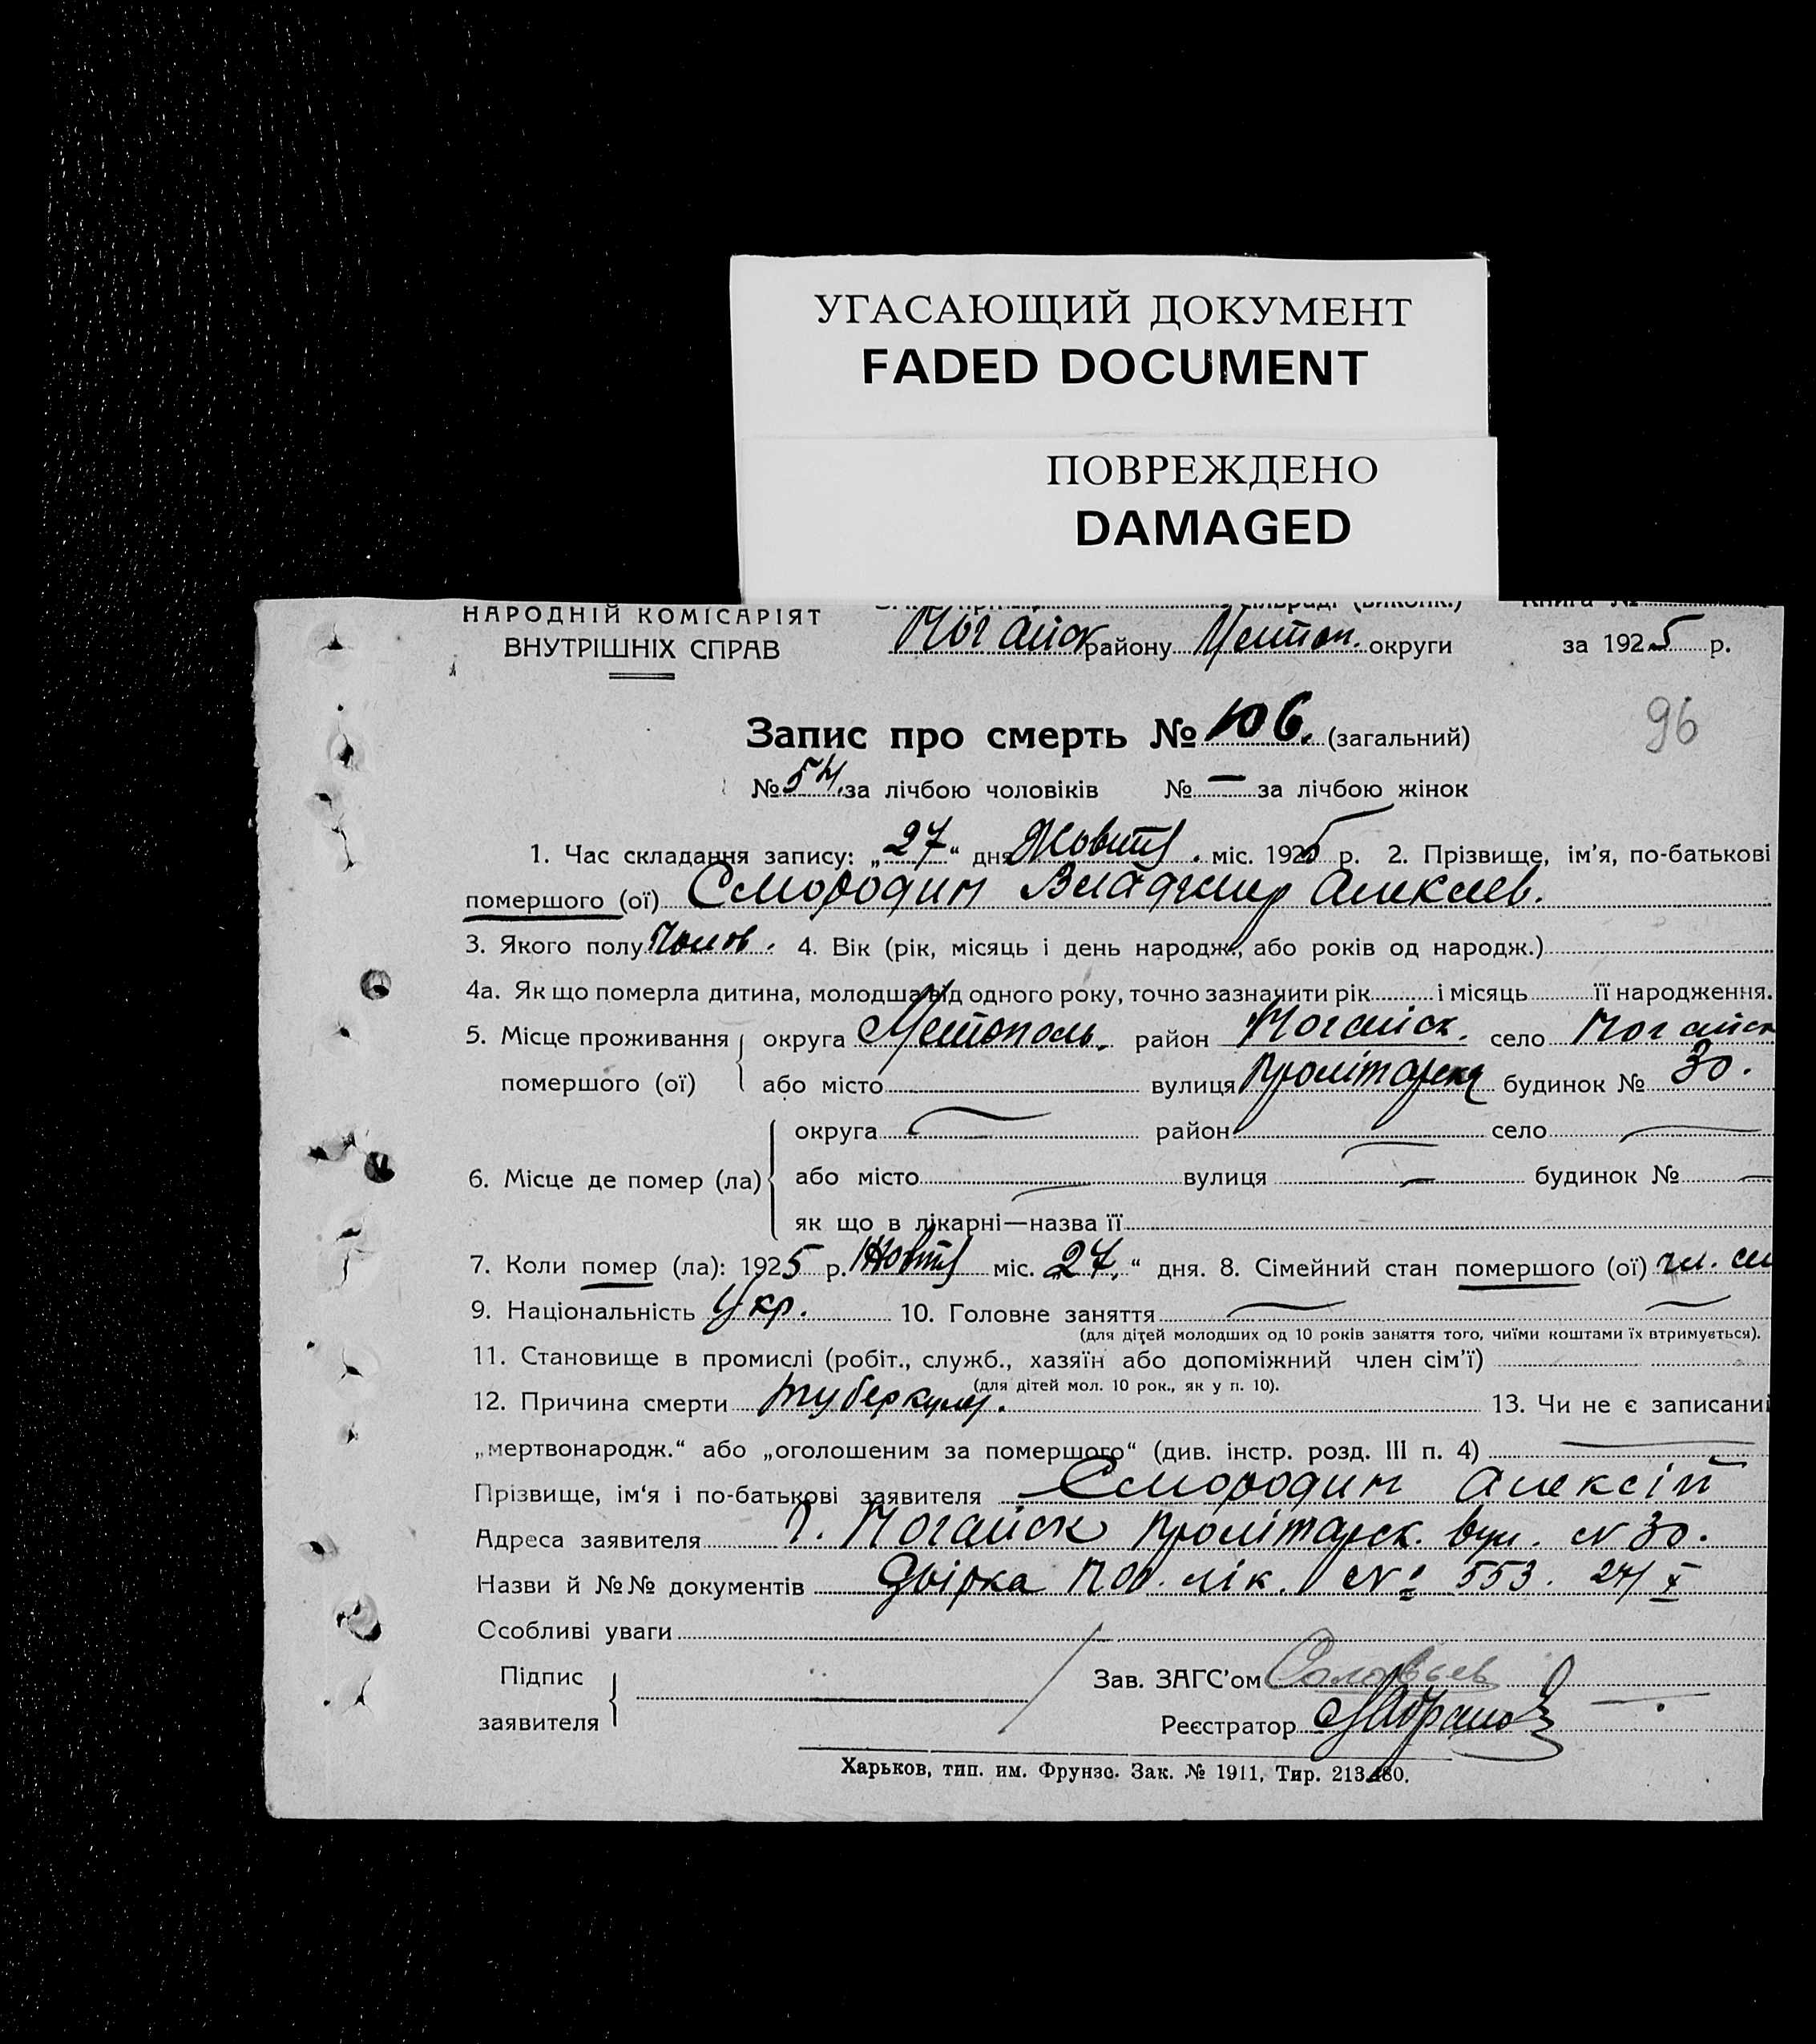 УГАСАЮЩИЙ ДОКУМЕНТ
FADED DOCUMENT
ПОВРЕЖДЕНО
DAMAGED
НАРОДНІЙ КОМІСАРІЯТ
ВНУТРІШНІХ СПРАВ
Ногайск району Мелітоп. округи за 1925 р.
Запис про смерть № 106. (загальний)
96
№ 54. за лічбою чоловіків № — за лічбою жінок
1. Час складання запису: „27“ дня Жовтн. міс. 1925 р. 2. Прізвище, ім'я, по-батькові
помершого (ої) Смородин Владимир Алексеев.
3. Якого полу Чолов. 4. Вік (рік, місяць і день народж., або років од народж.)
4а. Як що померла дитина, молодша від одного року, точно зазначити рік і місяць її народження.
5. Місце проживання округа Мелітополь. район Ногайск. село Ногайск
помершого (ої) або місто вулиця Пролітарска будинок № 30.
округа район село
6. Місце де помер (ла) або місто вулиця будинок №
як що в лікарні—назва її
7. Коли помер (ла): 1925 р. Жовтн міс. „27.“ дня. 8. Сімейний стан помершого (ої) чл. см
9. Національність Укр. 10. Головне заняття
(для дітей молодших од 10 років заняття того, чиїми коштами їх втримується).
11. Становище в промислі (робіт., служб., хазяїн або допоміжний член сім'ї)
(для дітей мол. 10 рок., як у п. 10).
12. Причина смерти туберкулез. 13. Чи не є записаний
„мертвонародж.“ або „оголошеним за помершого“ (див. інстр. розд. III п. 4)
Прізвище, ім'я і по-батькові заявителя Смородин Алексій
Адреса заявителя г. Ногайск Пролітарск. вул. № 30.
Назви й №№ документів Довірка Пов. лік. № 553. 27/X
Ссобливі уваги
Підпис
заявителя
Зав. ЗАГС'ом Соловьев
Реєстратор
Харьков, тип. им. Фрунзе. Зак. № 1911, Тир. 213.480.